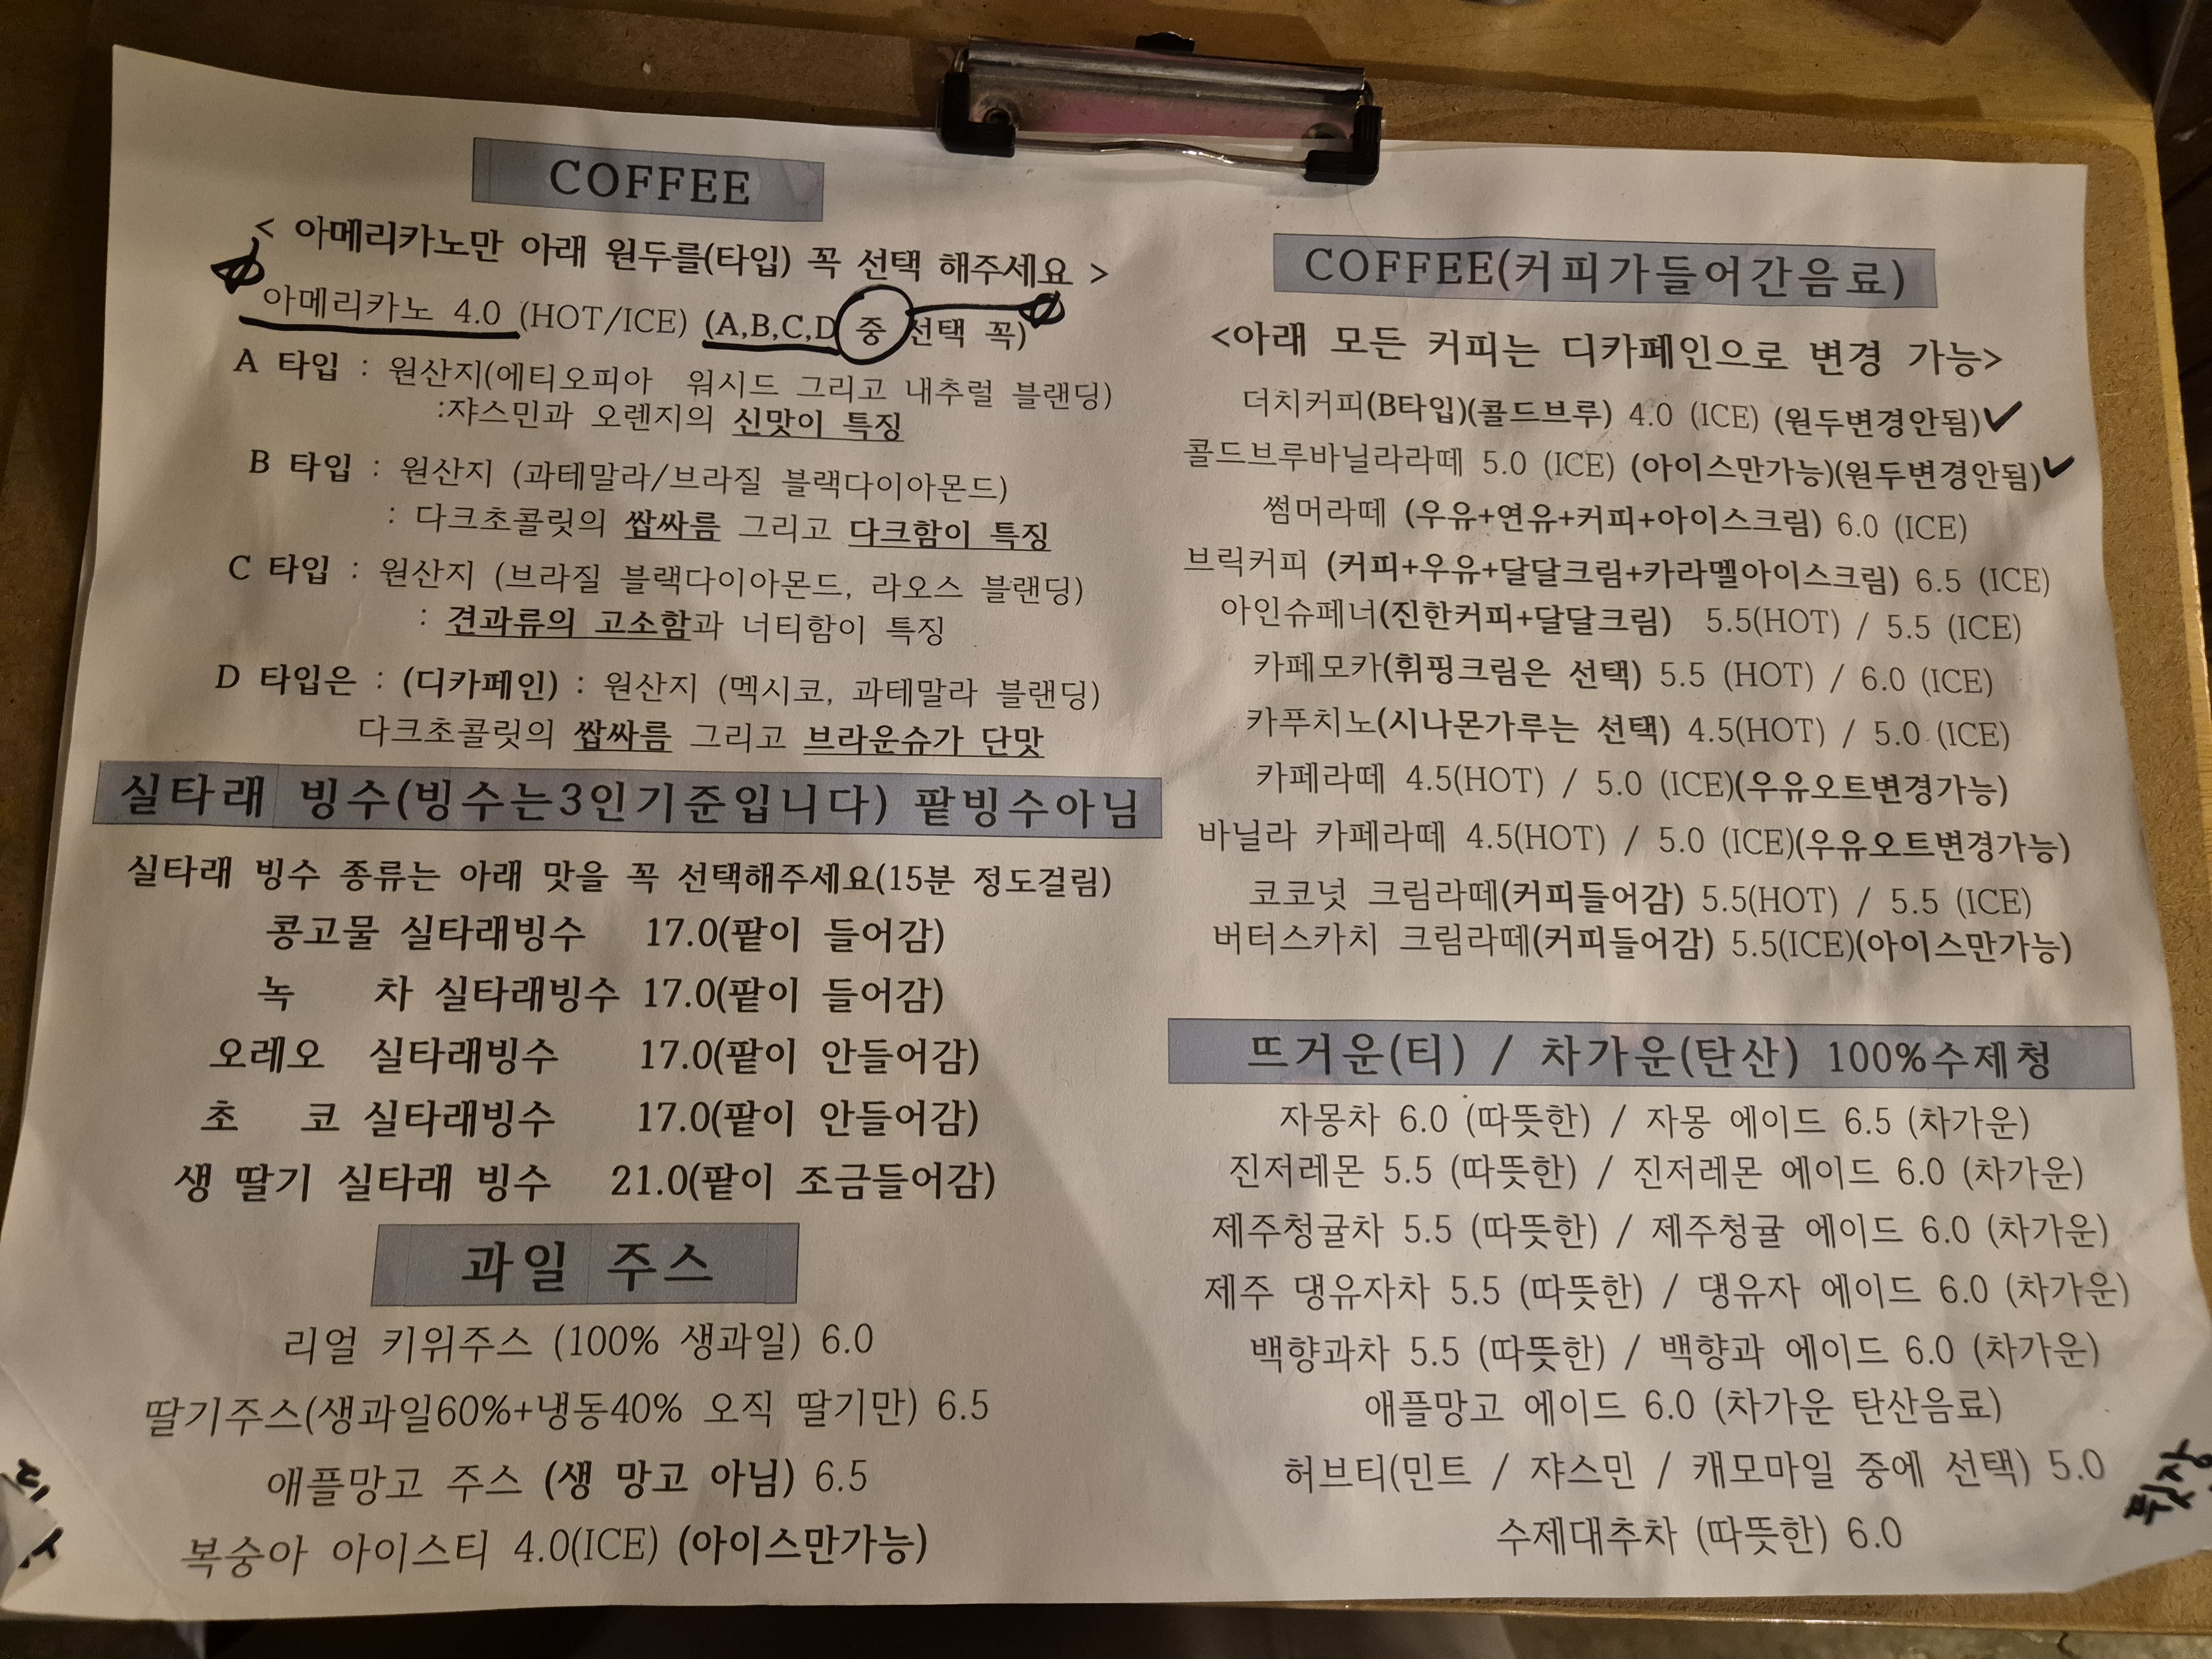 COFFEE
< 아메리카노만 아래 원두를(타입) 꼭 선택 해주세요 >
아메리카노 4.0 (HOT/ICE) (A,B,C,D 중 선택 꼭)
A 타입 : 원산지(에티오피아 워시드 그리고 내추럴 블랜딩)
:쟈스민과 오렌지의 신맛이 특징
B 타입 : 원산지 (과테말라/브라질 블랙다이아몬드)
: 다크초콜릿의 쌉싸름 그리고 다크함이 특징
C 타입 : 원산지 (브라질 블랙다이아몬드, 라오스 블랜딩)
: 견과류의 고소함과 너티함이 특징
D 타입은 : (디카페인) : 원산지 (멕시코, 과테말라 블랜딩)
다크초콜릿의 쌉싸름 그리고 브라운슈가 단맛
실타래 빙수(빙수는3인기준입니다) 팥빙수아님
실타래 빙수 종류는 아래 맛을 꼭 선택해주세요(15분 정도걸림)
콩고물 실타래빙수 17.0(팥이 들어감)
녹 차 실타래빙수 17.0(팥이 들어감)
오레오 실타래빙수 17.0(팥이 안들어감)
초 코 실타래빙수 17.0(팥이 안들어감)
생 딸기 실타래 빙수 21.0(팥이 조금들어감)
과일 주스
리얼 키위주스 (100% 생과일) 6.0
딸기주스(생과일60%+냉동40% 오직 딸기만) 6.5
애플망고 주스 (생 망고 아님) 6.5
복숭아 아이스티 4.0(ICE) (아이스만가능)
COFFEE(커피가들어간음료)
<아래 모든 커피는 디카페인으로 변경 가능>
더치커피(B타입)(콜드브루) 4.0 (ICE) (원두변경안됨)✓
콜드브루바닐라라떼 5.0 (ICE) (아이스만가능)(원두변경안됨)✓
썸머라떼 (우유+연유+커피+아이스크림) 6.0 (ICE)
브릭커피 (커피+우유+달달크림+카라멜아이스크림) 6.5 (ICE)
아인슈페너(진한커피+달달크림) 5.5(HOT) / 5.5 (ICE)
카페모카(휘핑크림은 선택) 5.5 (HOT) / 6.0 (ICE)
카푸치노(시나몬가루는 선택) 4.5(HOT) / 5.0 (ICE)
카페라떼 4.5(HOT) / 5.0 (ICE)(우유오트변경가능)
바닐라 카페라떼 4.5(HOT) / 5.0 (ICE)(우유오트변경가능)
코코넛 크림라떼(커피들어감) 5.5(HOT) / 5.5 (ICE)
버터스카치 크림라떼(커피들어감) 5.5(ICE)(아이스만가능)
뜨거운(티) / 차가운(탄산) 100%수제청
자몽차 6.0 (따뜻한) / 자몽 에이드 6.5 (차가운)
진저레몬 5.5 (따뜻한) / 진저레몬 에이드 6.0 (차가운)
제주청귤차 5.5 (따뜻한) / 제주청귤 에이드 6.0 (차가운)
제주 댕유자차 5.5 (따뜻한) / 댕유자 에이드 6.0 (차가운)
백향과차 5.5 (따뜻한) / 백향과 에이드 6.0 (차가운)
애플망고 에이드 6.0 (차가운 탄산음료)
허브티(민트 / 쟈스민 / 캐모마일 중에 선택) 5.0
수제대추차 (따뜻한) 6.0